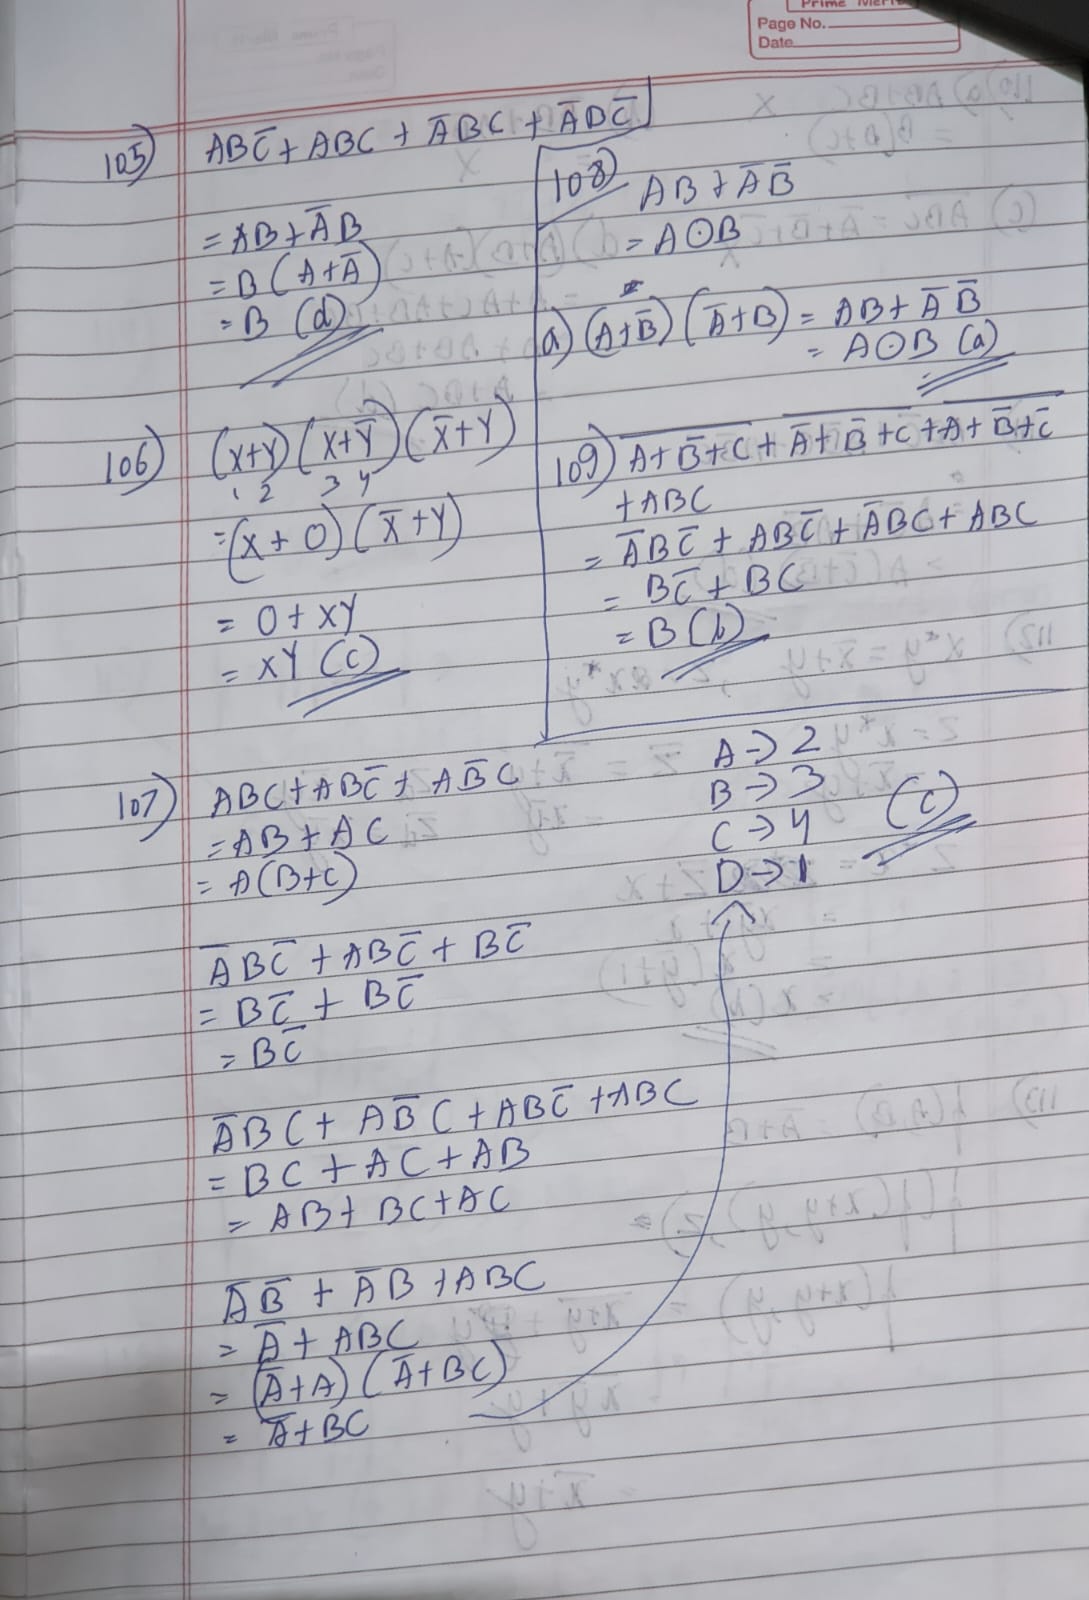 Prime Meri
Page No.
Date
105) ABC̅ + ABC + A̅BC + A̅BC̅
= AB + A̅B
= B(A+A̅)
= B (d)
106) (X+Y)(X+Y̅)(X̅+Y)
1 2 3 4
= (X+0)(X̅+Y)
= 0 + XY
= XY (c)
108) AB + A̅B̅
= A⊙B
a) (A+B̅)(A̅+B) = AB + A̅B̅
= A⊙B (a)
109) A̅+̅B̅̅+̅C̅ + A̅̅+̅B̅̅+̅C̅ + A̅+̅B̅̅+̅C̅̅
+ABC
= A̅BC̅ + ABC̅ + A̅BC + ABC
= BC̅ + BC
= B (b)
107) ABC + ABC̅ + AB̅C
= AB + AC
= A(B+C)
A̅BC̅ + ABC̅ + BC̅
= BC̅ + BC̅
= BC̅
A̅BC + AB̅C + ABC̅ + ABC
= BC + AC + AB
= AB + BC + AC
A̅B̅ + A̅B + ABC
= A̅ + ABC
= (A̅+A)(A̅+BC)
= A̅+BC
A → 2
B → 3
C → 4
D → 1
(c)